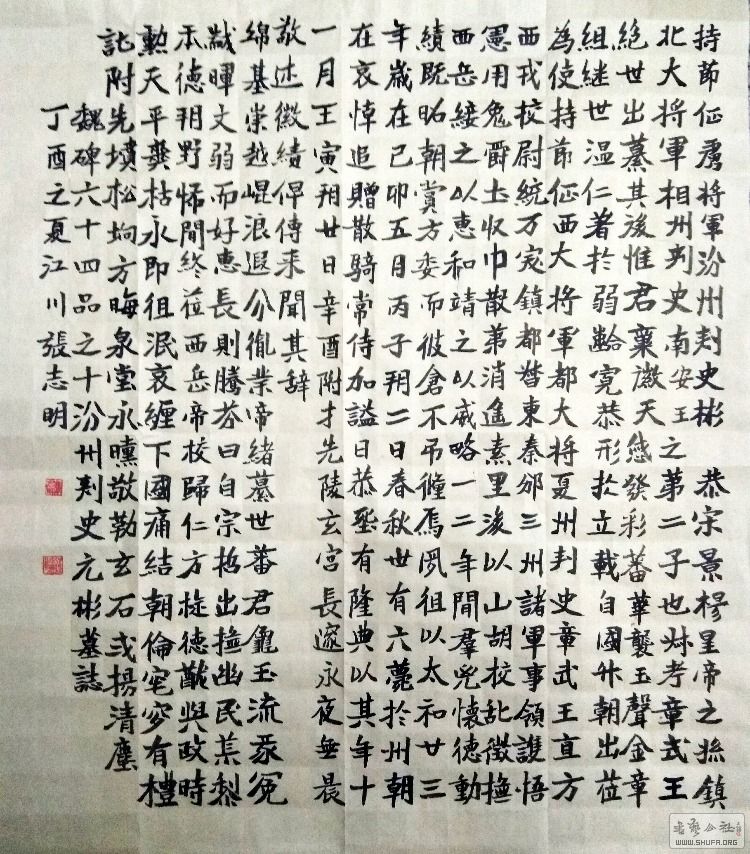 持節征虜將軍汾州刾史彬 恭宗景穆皇帝之孫鎮
北大將軍相州刾史南安王之第二子也叔考章武王
絶世出纂其後惟君稟徽天感發彩蕃華襲玉聲金章
組継世温仁著於弱齡寛恭形於立載自國升朝出莅
為使持節征西大將軍都大將夏州刾史章武王直方
西戎校尉統万突鎮都督東秦邠三州諸軍事領護悟
憲用免爵土收巾散第消遥素里後以山胡校乱徵撫
西岳綏之以恵和靖之以威略一二年間羣兇懷德勳
績既昭朝賞方委而彼倉不吊殲焉夙徂以太和廿三
年歲在己卯五月丙子朔二日春秋卅有六薨於州朝
在哀悼追贈散騎常侍加謚曰恭烝有隆典以其年十
一月壬寅朔廿日辛酉附才先陵玄宫長邃永夜無晨
敬述徽績俾傳来聞其辞
綿基崇越崐浪遐分胤業帝緒纂世蕃君龜玉流彖冕
黻暉文弱而好恵長則騰芬曰自宗哲出撫幽民荒黎
禾德朔野怖閒終莅西岳帝校歸仁方旋德猷與政時
勲天平龔枯永即徂泯哀纏下國痛結朝倫窀穸有禮
託附先墳松坰方晦泉堂永曛敬勒玄石式揚清塵
魏碑六十四品之十汾州刾史元彬墓誌
丁酉之夏江川張志明
书艺公社
WWW.SHUFA.ORG